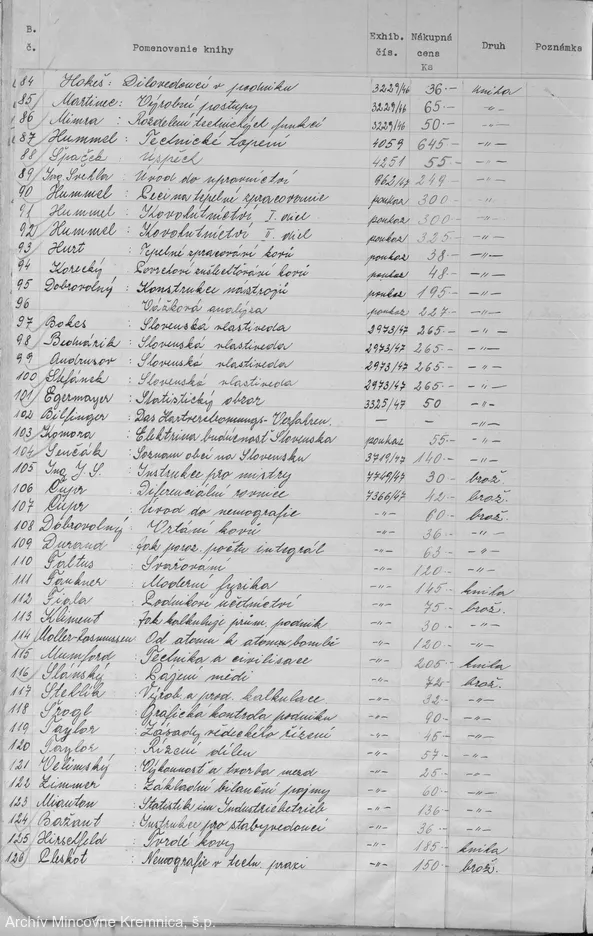 B. č. Pomenovanie knihy Exhib. čís. Nákupná cena Ks Druh Poznámka
84 Hokeš: Dílovedoucí v podniku 3229/46 36.- kniha
85 Martinec: Výrobní postupy 3229/46 65.- -"-
86 Mimra: Rozdelení technických funkcí 3229/46 50.- -"-
87 Hummel: Technické topení 4059 645- -"-
88 Špaček: Úspěch 4251 55- -"-
89 Ing Svetla: Úvod do 962/47 249- -"-
90 Hummel: Peci na tepelné zpracovanie poukaz 300- -"-
91 Hummel: Kovohutníctví I. diel poukaz 300- -"-
92 Hummel: Kovohutníctví II. diel poukaz 325- -"-
93 Hurt: Tepelné zpracování kovů poukaz 38- -"-
94 Korecký: Povrchové zušlechtování kovů poukaz 48- -"-
95 Dobrovolný: Konstrukce nástrojů poukaz 195- -"-
96 Vážková analýza poukaz 227- -"-
97 Bokes: Slovenská vlastiveda 2973/47 265.- -"-
98 Bednárik: Slovenská vlastiveda 2973/47 265.- -"-
99 Andrusov: Slovenská vlastiveda 2973/47 265.- -"-
100 Štefánek: Slovenská vlastiveda 2973/47 265.- -"-
101 Egermayer: Statistický obzor 3325/47 50 -"-
102 Bilfinger: Das Hartverchromungs-Verfahren. - - -"-
103 Komora: Elektrina budúcnosť Slovenska poukaz 55.- -"-
104 Senčák: Soznam obcí na Slovensku 3719/47 140.- -"-
105 Ing J. S.: Instrukce pro mistry 7749/47 30- brož.
106 Čupr: Diferenciální rovnice 7366/47 42- brož.
107 Čupr: Úvod do nomografie -"- 60- brož.
108 Dobrovolný: Vrtání kovů -"- 36- -"-
109 Durand: Jak poroz. počtu integrál -"- 63- -"-
110 Faltus: Svařování -"- 120- -"-
111 Faukner: Moderní fyzika -"- 145- kniha
112 Figla: Podnikové účtníctví -"- 75- brož.
113 Kliment: Jak kalkuluje prům. podnik -"- 30- -"-
114 Moller-Rasmussen: Od atomu k atomov. bombě -"- 120- -"-
115 Mumford: Technika a civilisace -"- 205- kniha
116 Slánský: Pájení mědi -"- 72- brož.
117 Steblík: Výrob. a prod. kalkulace -"- 32- -"-
118 Grafická kontrola podniku -"- 90- -"-
119 Taylor: Zásady vědeckého řízení -"- 45- -"-
120 Taylor: Řízení dílen -"- 57- -"-
121 Velímský: Výkonnosť a tvorba mezd -"- 25- -"-
122 Zimmer: Základní bilanční pojmy -"- 60- -"-
123 Mauton: Statistik im Industriebetrieb -"- 136- -"-
124 Bažant: Instrukce pro stavbyvedoucí -"- 36- -"-
125 Hirschfeld: Tvrdé kovy -"- 185- kniha
126 Pleskot: Nomografie v techn. praxi -"- 150- brož.
Archív Mincovne Kremnica, š.p.